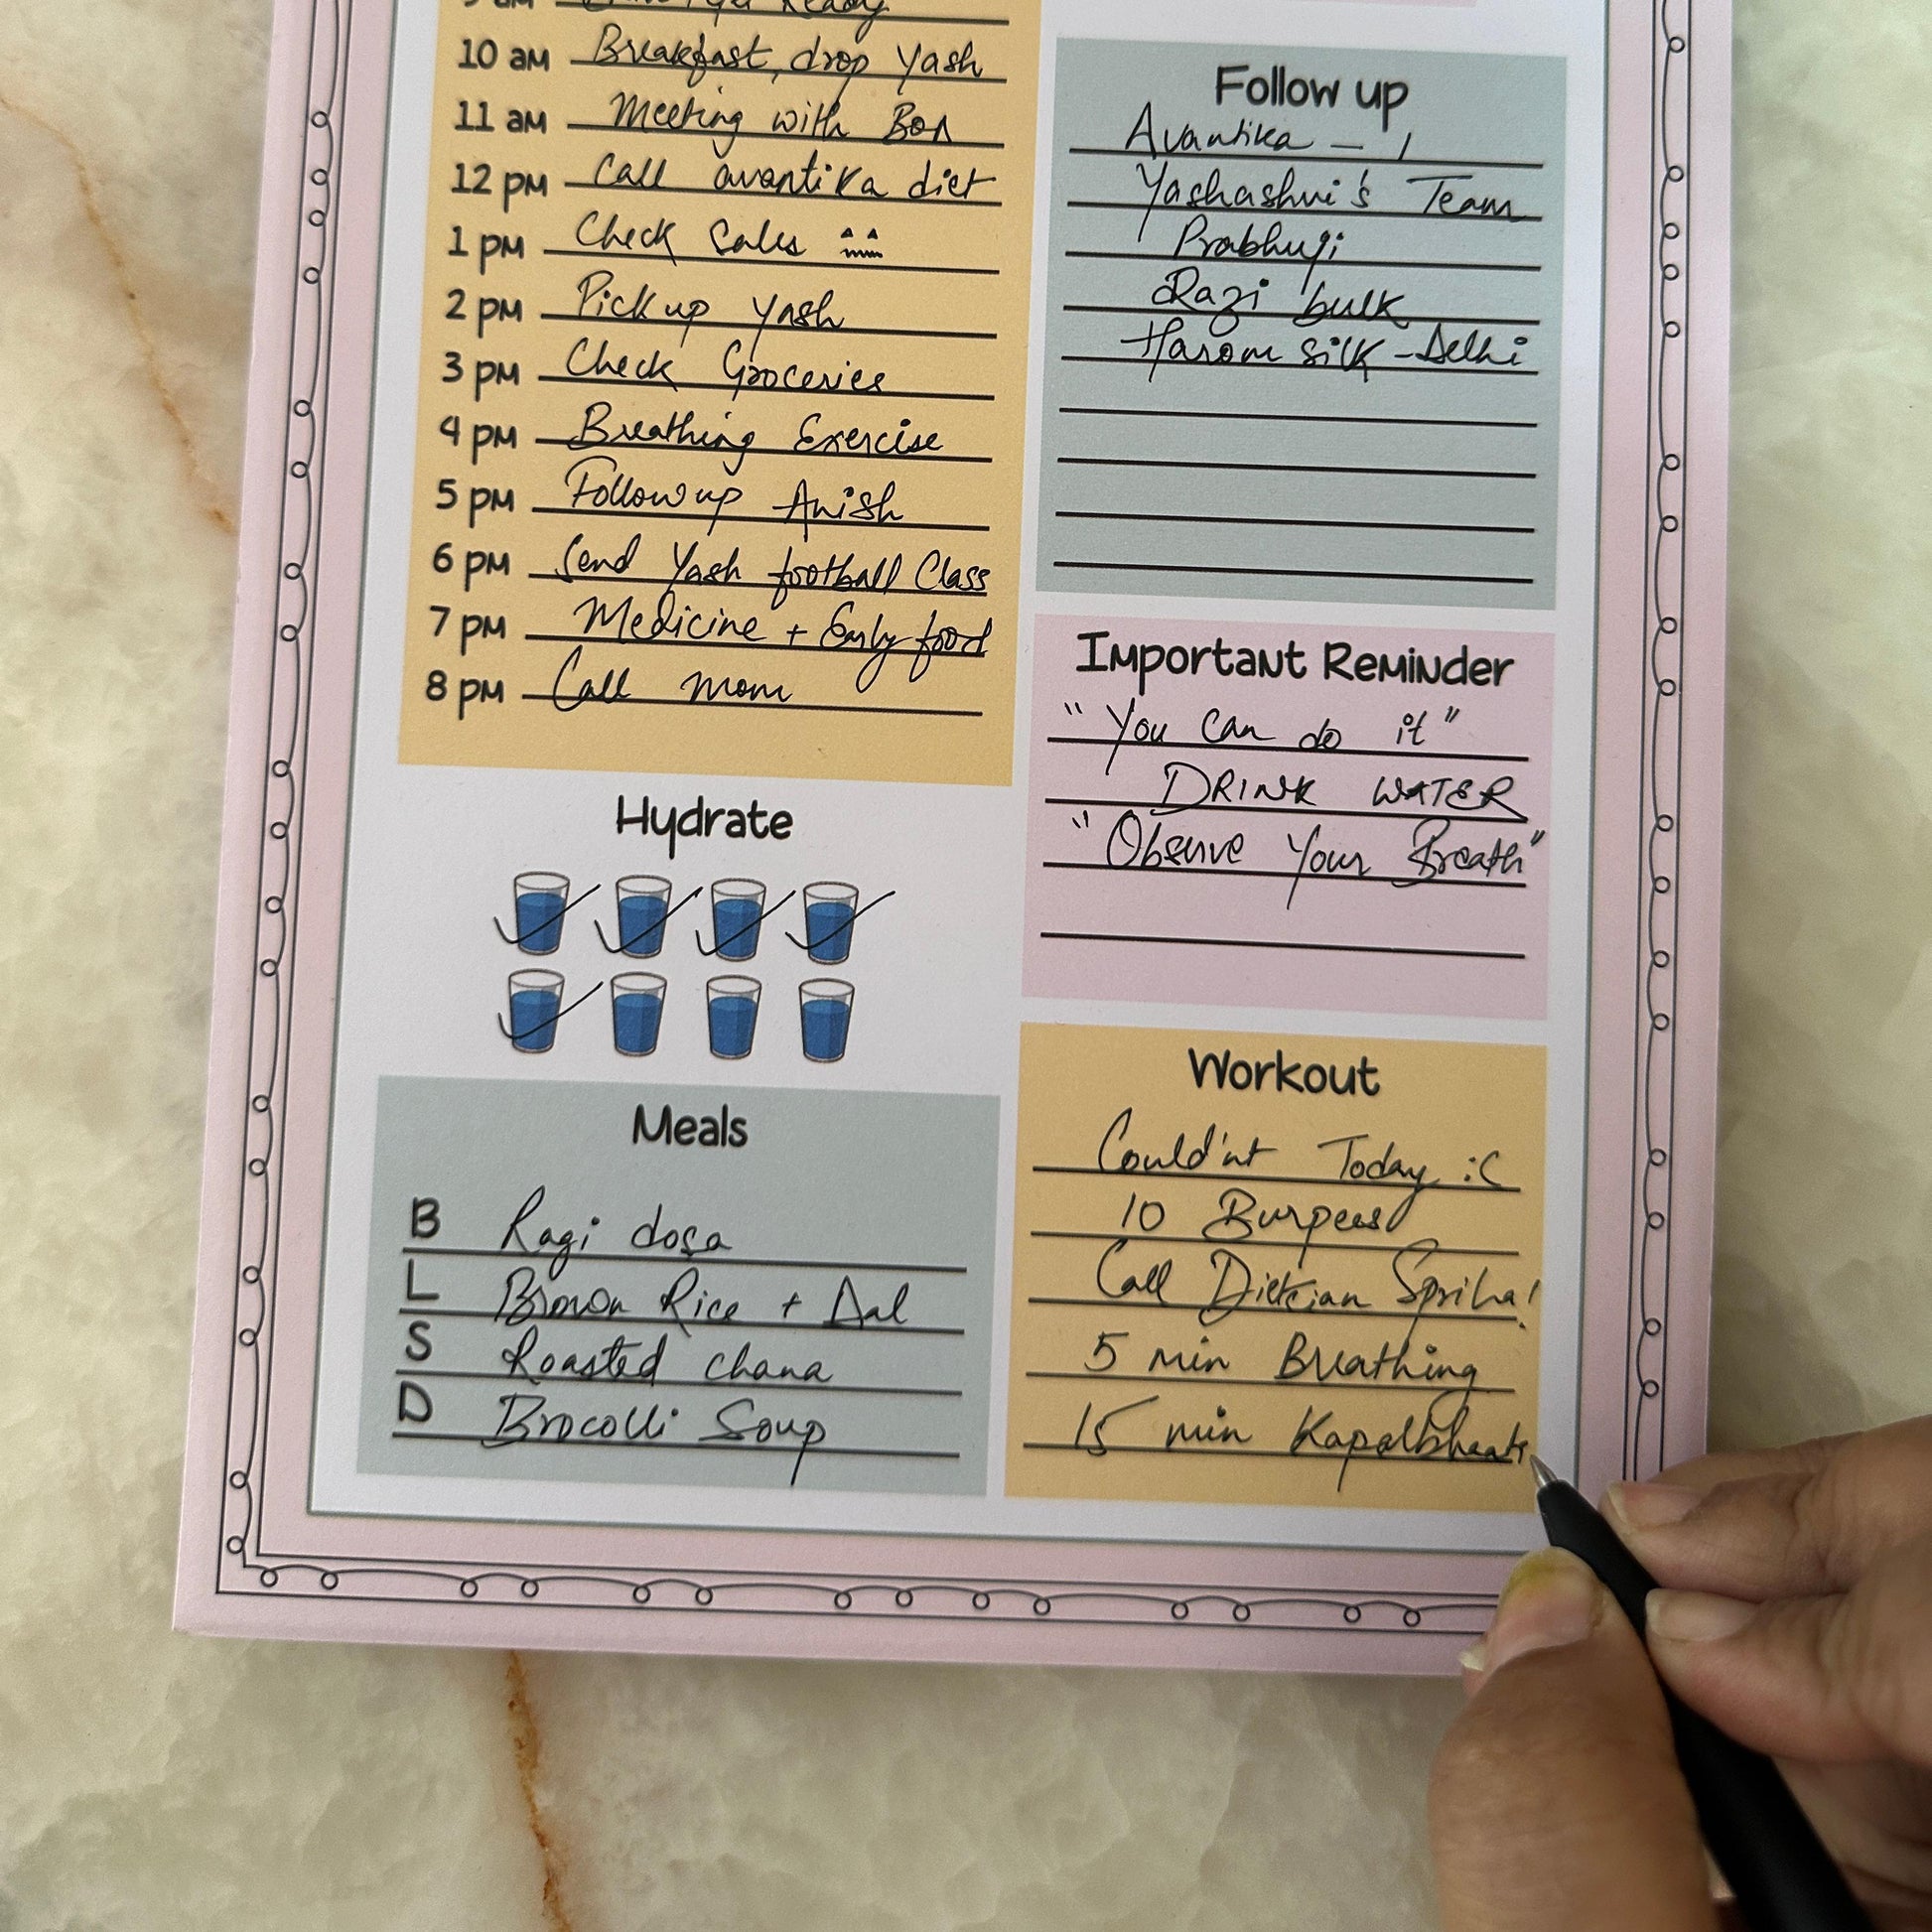 Ready
10 am Breakfast, drop Yash
11 am Meeting with BOA
12 pm Call avantika diet
1 pm Check Sales
2 pm Pick up Yash
3 pm Check Groceries
4 pm Breathing Exercise
5 pm Follow up Anish
6 pm Send Yash football Class
7 pm Medicine + Early food
8 pm Call mom
Hydrate
Meals
B Ragi dosa
L Brown Rice + Dal
S Roasted chana
D Brocolli Soup
Follow up
Avantika - 1
Yashashvi's Team
Prabhuji
Razi bulk
Harom silk - Delhi
Important Reminder
"You can do it"
DRINK WATER
"Observe Your Breath"
Workout
Could'nt Today :C
10 Burpees
Call Dietcian Spriha!
5 min Breathing
15 min Kapalbhaati